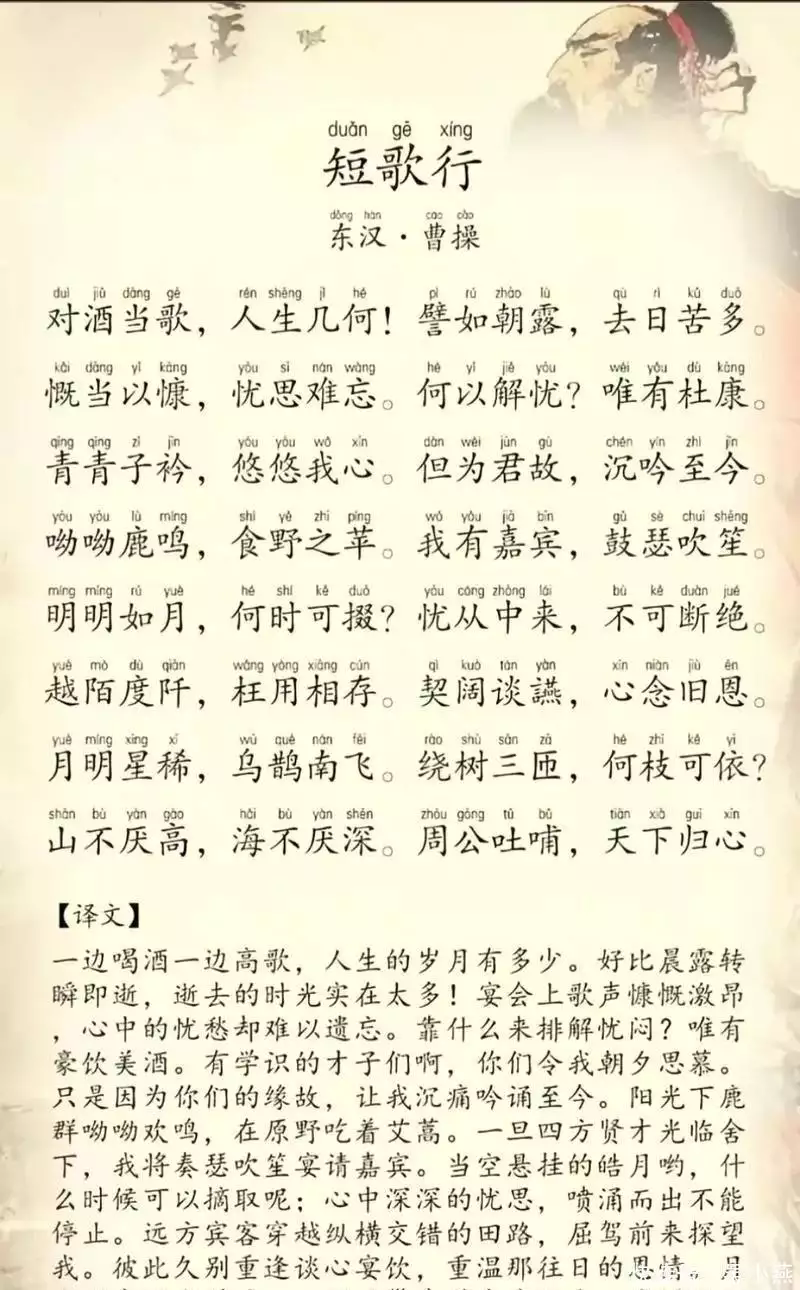 duǎn gē xíng
短歌行
dōng hàn cáo cāo
东汉·曹操
duì jiǔ dāng gē rén shēng jǐ hé pì rú zhāo lù qù rì kǔ duō
对酒当歌，人生几何！譬如朝露，去日苦多。
kǎi dāng yǐ kāng yōu sī nán wàng hé yǐ jiě yōu wéi yǒu dù kāng
慨当以慷，忧思难忘。何以解忧？唯有杜康。
qīng qīng zǐ jīn yōu yōu wǒ xīn dàn wèi jūn gù chén yín zhì jīn
青青子衿，悠悠我心。但为君故，沉吟至今。
yōu yōu lù míng shí yě zhī píng wǒ yǒu jiā bīn gǔ sè chuī shēng
呦呦鹿鸣，食野之苹。我有嘉宾，鼓瑟吹笙。
míng míng rú yuè hé shí kě duō yōu cóng zhōng lái bù kě duàn jué
明明如月，何时可掇？忧从中来，不可断绝。
yuè mò dù qiān wǎng yòng xiāng cún qì kuò tán yàn xīn niàn jiù ēn
越陌度阡，枉用相存。契阔谈讌，心念旧恩。
yuè míng xīng xī wū què nán fēi rào shù sān zā hé zhī kě yī
月明星稀，乌鹊南飞。绕树三匝，何枝可依？
shān bù yàn gāo hǎi bù yàn shēn zhōu gōng tǔ bǔ tiān xià guī xīn
山不厌高，海不厌深。周公吐哺，天下归心。
【译文】
一边喝酒一边高歌，人生的岁月有多少。好比晨露转
瞬即逝，逝去的时光实在太多！宴会上歌声慷慨激昂
，心中的忧愁却难以遗忘。靠什么来排解忧闷？唯有
豪饮美酒。有学识的才子们啊，你们令我朝夕思慕。
只是因为你们的缘故，让我沉痛吟诵至今。阳光下鹿
群呦呦欢鸣，在原野吃着艾蒿。一旦四方贤才光临舍
下，我将奏瑟吹笙宴请嘉宾。当空悬挂的皓月哟，什
么时候可以摘取呢；心中深深的忧思，喷涌而出不能
停止。远方宾客穿越纵横交错的田路，屈驾前来探望
我。彼此久别重逢谈心宴饮，重温那往日的恩情。月